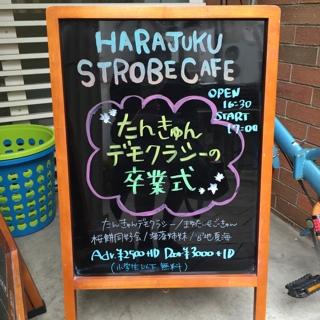 HARAJUKU
STROBE CAFE
OPEN
16:30
START
17:00
たんきゅん
デモクラシーの
卒業式
たんきゅんデモクラシー/
桜餅同好会/海姉妹/宮地夏海
Adv.¥2500+1D Door¥3000+1D
(小学生以下 無料)